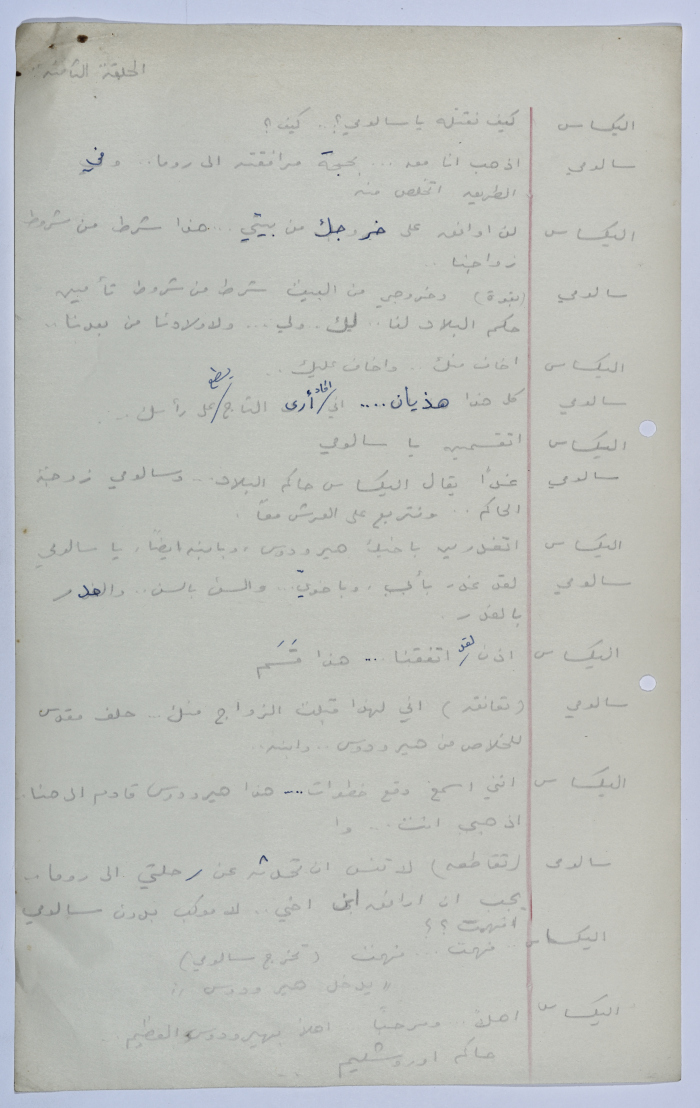 الحلقة الثامنة
اليكساس كيف نقتله يا سالومي؟.. كيف؟
سالومي اذهب انا معه ... بحجة مرافقته الى روما.. وفي
الطريق اتخلص منه
اليكساس لن اوافق على خروجك من بيتي... هذا شرط من شروط
زواجنا..
سالومي (بقوة) وخروجي من البيت شرط من شروط تأمين
حكم البلاد لنا.. لك.. ولي... ولاولادنا من بعدنا..
اليكساس اخاف منك.. واخاف عليك..
سالومي كل هذا هذيان.... اني اكاد أرى التاج يسطع على رأسك..
اليكساس اتقسمين يا سالومي
سالومي غداً يقال اليكساس حاكم البلاد... وسالومي زوجة
الحاكم.. ونتربع على العرش معاً.
اليكساس اتغدرين باخيك هيرودوس، وبابنه ايضاً، يا سالومي
سالومي لقد غدر بأبي، وباخويّ... والسن بالسن.. والغدر
بالغدر.
اليكساس اذن لقد اتفقنا... هذا قَسَم
سالومي (تعانقه) اني لهذا قبلت الزواج منك... حلف مقدس
للخلاص من هيرودوس.. وابنه..
اليكساس انني اسمع وقع خطوات.... هذا هيرودوس قادم الى هنا.
اذهبي انت... وا
سالومي (تقاطعه) لا تنس ان تحدثه عن رحلتي الى روما..
يجب ان ارافق ابن اخي.. لا موكب بدون سالومي
افهمت؟؟
اليكساس فهمت... فهمت (تخرج سالومي)
"يدخل هيرودوس"
اليكساس اهلاً.. ومرحباً اهلاً بهيرودوس العظيم..
حاكم اورشليم ...